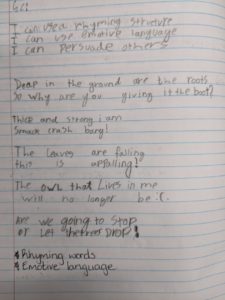 SC:
I can use a rhyming structure
I can use emotive language
I can persuade others
Deap in the ground are the roots
So why are you giving it the boot?
Thick and strong i am
Smack crash bang!
The leaves are falling
this is appalling!
The owl that Lives in me
will no longer be :(.
Are we going to Stop
or Let the tree DROP!
*Rhyming words
*Emotive language